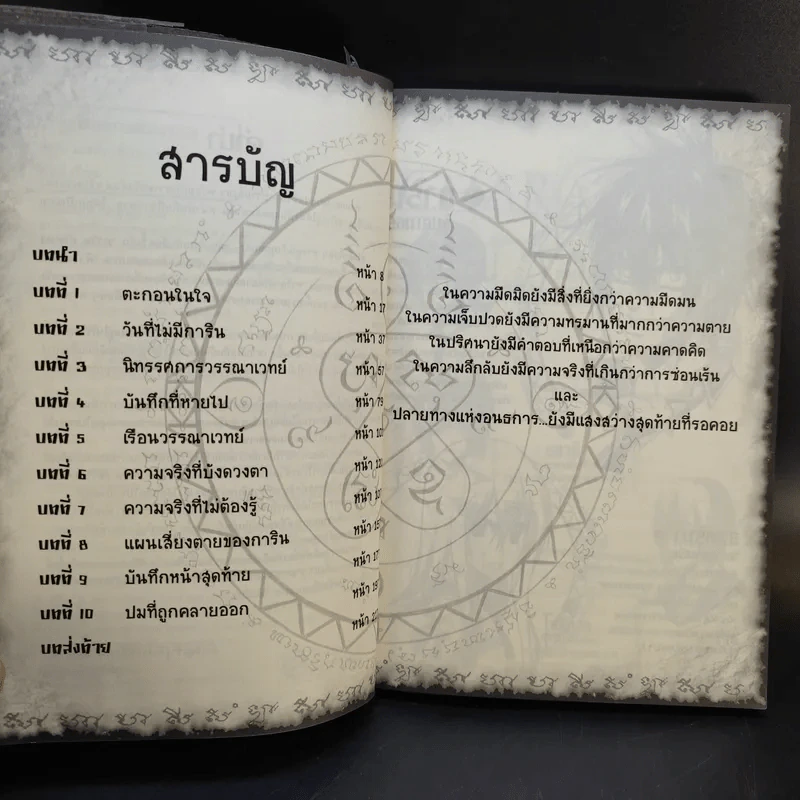 สารบัญ
บทนำ หน้า 8
บทที่ 1 ตะกอนในใจ หน้า 17
บทที่ 2 วันที่ไม่มีการิน หน้า 37
บทที่ 3 นิทรรศการวรรณาเวทย์ หน้า 57
บทที่ 4 บันทึกที่หายไป หน้า 79
บทที่ 5 เรือนวรรณาเวทย์ หน้า
บทที่ 6 ความจริงที่บังดวงตา หน้า
บทที่ 7 ความจริงที่ไม่ต้องรู้ หน้า
บทที่ 8 แผนเสี่ยงตายของการิน หน้า
บทที่ 9 บันทึกหน้าสุดท้าย หน้า
บทที่ 10 ปมที่ถูกคลายออก หน้า
บทส่งท้าย
ในความมืดมิดยังมีสิ่งที่ยิ่งกว่าความมืดมน
ในความเจ็บปวดยังมีความทรมานที่มากกว่าความตาย
ในปริศนายังมีคำตอบที่เหนือกว่าความคาดคิด
ในความลึกลับยังมีความจริงที่เกินกว่าการซ่อนเร้น
และ
ปลายทางแห่งอนธการ...ยังมีแสงสว่างสุดท้ายที่รอคอย